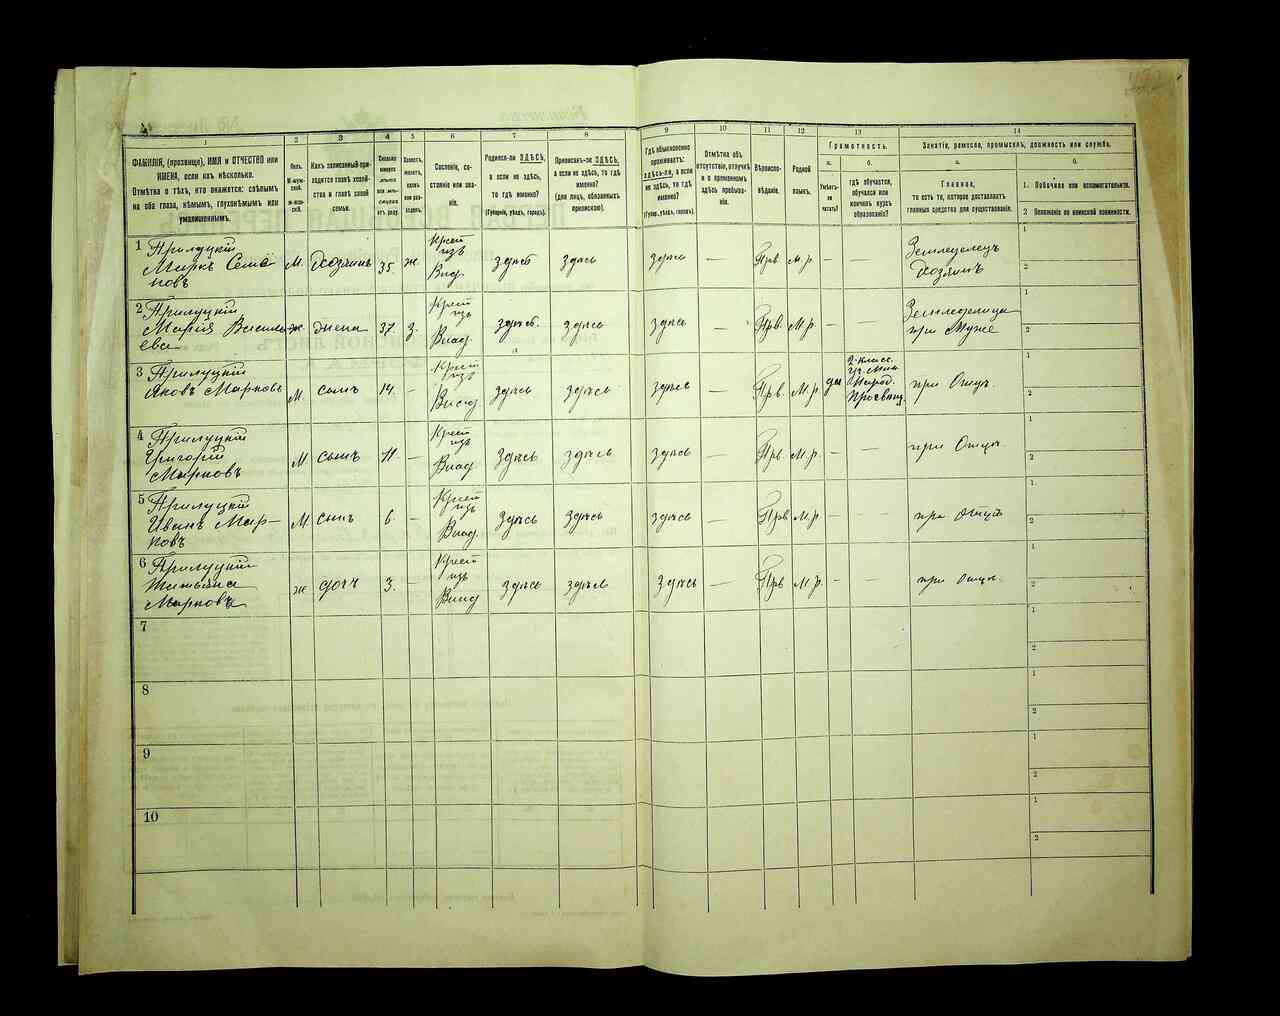 1
ФАМИЛІЯ, (прозвище), ИМЯ и ОТЧЕСТВО или
ИМЕНА, если ихъ нѣсколько.
Отмѣтка о тѣхъ, кто окажется: слѣпымъ
на оба глаза, нѣмымъ, глухонѣмымъ или
умалишеннымъ.
2
Полъ.
М-муж-
ской.
Ж-жен-
скій.
3
Какъ записанный при-
ходится главѣ хозяй-
ства и главѣ своей
семьи.
4
Сколько
минуло
лѣтъ
или мѣ-
сяцевъ
отъ роду.
5
Холостъ,
женатъ,
вдовъ
или раз-
веденъ.
6
Сословіе, со-
стояніе или зва-
ніе.
7
Родился-ли ЗДѢСЬ,
а если не здѣсь,
то гдѣ именно?
(Губернія, уѣздъ, городъ).
8
Приписанъ-ли ЗДѢСЬ,
а если не здѣсь, то гдѣ
именно?
(для лицъ, обязанныхъ
припискою).
9
Гдѣ обыкновенно
проживаетъ:
здѣсь-ли, а если
не здѣсь, то гдѣ
именно?
(Губер., уѣздъ, городъ).
10
Отмѣтка объ
отсутствіи, отлучкѣ
и о временномъ
здѣсь пребыва-
ніи.
11
Вѣроиспо-
вѣданіе.
12
Родной
языкъ.
13
Грамотность.
а.
Умѣетъ-
ли
читать?
б.
гдѣ обучается,
обучался или
кончилъ курсъ
образованія?
14
Занятіе, ремесло, промыселъ, должность или служба.
а.
Главное,
то есть то, которое доставляетъ
главныя средства для существованія.
б.
1. Побочное или вспомогательное.
2 Положеніе по воинской повинности.
1 Прилуцкій
Маркъ Семе
новъ
М. Хозяинъ 35. ж Крест
изъ
Влад. здѣсь здѣсь здѣсь — Прв. М.р. — — Земледѣлецъ
Хозяинъ
1
2
2 Прилуцкій
Марія Василь
ева
ж жена 37. з. Крест
изъ
Влад. здѣсь. здѣсь здѣсь — Прв. М.р. — — Земледѣлица
при Мужѣ
1
2
3 Прилуцкій
Яковъ Марковъ
М. сынъ 14. — Крест
изъ
Влад. здѣсь здѣсь здѣсь — Прв. М.р. да 2-класс.
уч. Мин
Народ.
Просвѣщ. при Отцѣ.
1
2
4 Прилуцкій
Григорій
Марковъ
М. сынъ 11. — Крест
изъ
Влад. здѣсь здѣсь здѣсь — Прв. М.р. — — при Отцѣ.
1
2
5 Прилуцкій
Иванъ Мар-
ковъ
М. сынъ 6. — Крест
изъ
Влад. здѣсь здѣсь здѣсь — Прв М.р — — при Отцѣ
1
2
6 Прилуцкій
Татьяна
Маркова
ж дочь 3. — Крест
изъ
Влад здѣсь здѣсь здѣсь — Прв М.р. — — при отцѣ.
1
2
7
1
2
8
1
2
9
1
2
10
1
2